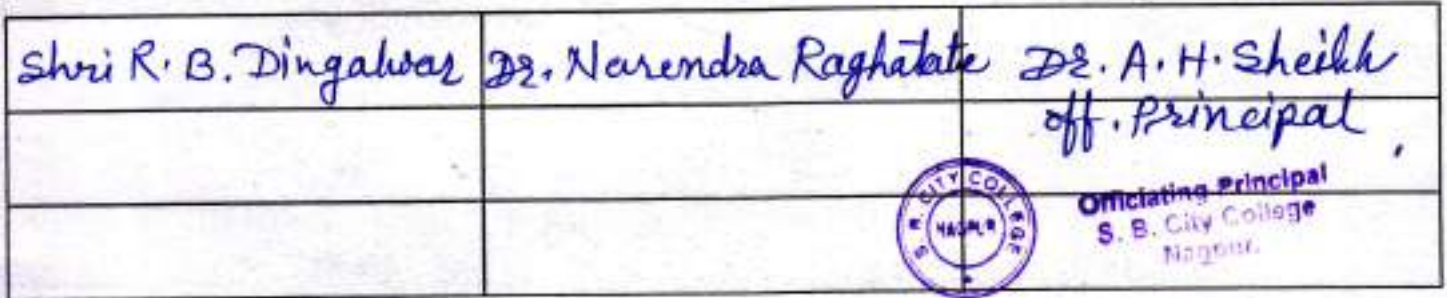 Shri R. B. Dingalwar Dr. Narendra Raghatate Dr. A. H. Sheikh
off. Principal
S. B. CITY COLLEGE
NAGPUR
Officiating Principal
S. B. City College
Nagpur.